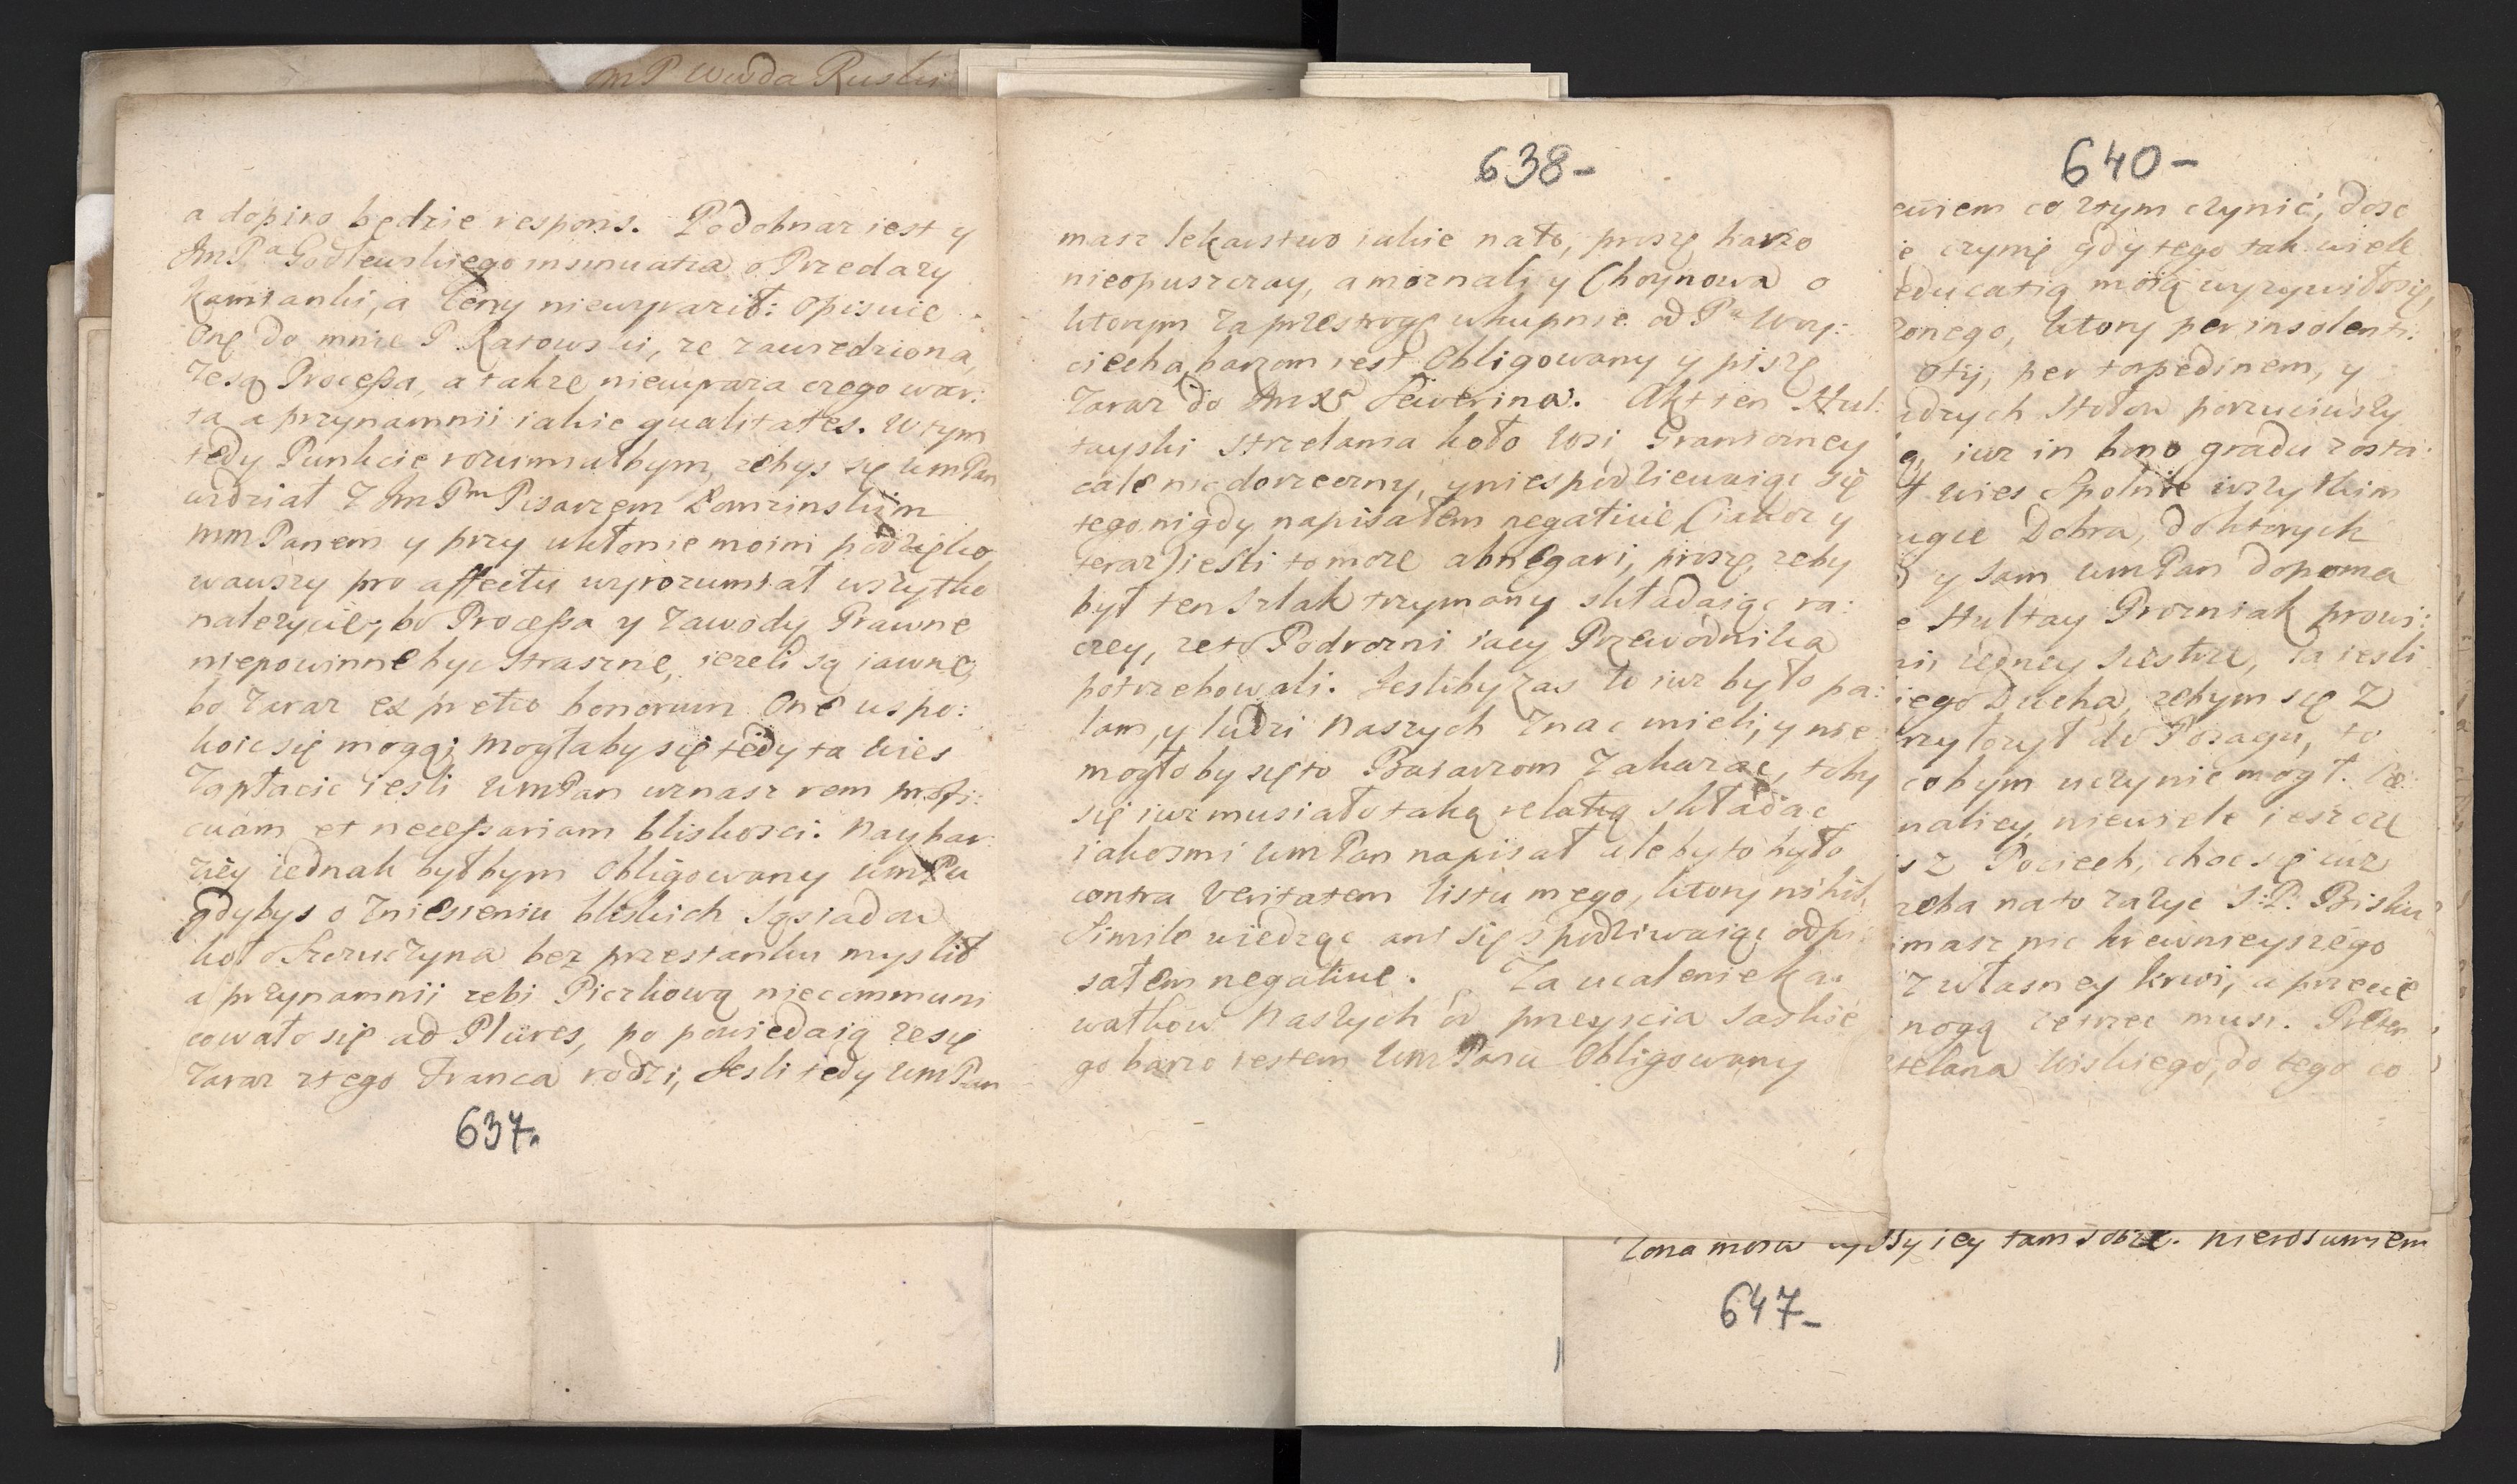 Im P Wwda Ruski
a dopiro będzie respons. Podobnaz iest y
Im Pᵃ Godlewskiego insinuatia o Przedazy
Kamianki, a Ceny niewyraził: opisuie
One do mnie P Ratowski, ze zawiedziona,
ze są Processa, a takze niewyraza czego war:
ta a przynamnii iakie qualitates. W tym
tedy Punkcie rozumiałbym, zebys się WmPan
widział z Im Pᵐ Pisarzem Łomzinskim
mm Panem y przy ukłonie moim podzięko
wawszy pro affectu wyrozumiał wszytko
nalezycie, bo Processa y Zawody Prawne
niepowinne byc straszne, iezeli są iawne,
bo Zaraz ex pretio bonorum One uspo:
koic się mogą; mogłaby się tedy ta wies
Zapłacic iesli WmPan uznasz rem profi:
cuam et necessariam bliskosci: Naybar
ziey iednak byłbym Obligowany WmPu
gdybys o Zniesieniu bliskich Sąsiadow
koło Szczuczyna bez przestanku myslił
a przynamnii zebi Pierkową niecommuni
cowało się ad Plures, po powiedaią ze się
Zaraz ztego Franca rodzi, Jesli tedy WmPan
637.
638-
masz lekarstwo iakie nato, proszę barzo
nieopuszczay, a moznali y Choynowa o
ktorym za przestrogę wkupnie od Pᵃ Woy:
ciecha, barzom iest Obligowany y piszę
Zaraz do Im X Seweryna. Akt ten Hul:
tayski strzelania koło Wsi Graniczney
cale niedorzeczny, y niespodziewaiąc się
tego nigdy napisałem negative (iakoz y
teraz) iesli to moze abnegari, proszę, zeby
był ten szlak trzymany składaiąc ra:
czey, ze to Podrozni iacy Przewodnika
potrzebowali. Jesliby zas to iuz było pa:
lam, y ludzi Naszych Znac mieli, y nie
mogłoby się to Basarzom Zakazac, toby
się iuz musiało taką relatią składac
iakosmi WmPan napisał ale by to było
contra Veritatem listu mego, ktory nihil
Simile wiedząc ani się spodziwaiąc odpi
sałem negative. Za ucalenie ka
wałkow Naszych od przeyscia Saskie
go barzo iestem WmPanu Obligowany
640-
ewiem co ztym czynić, dosc
ie czynię gdy tego tak wiele
educatią moią wyzywiłosię,
zonego, ktory per insolenti:
oty, per torpedinem, y
adrych Stołow porzuciwszy
ą, iuz in bmo gradu zosta:
wies Spolnie wszytkim
ugie Dobra, do ktorych
y sam WmPan dopoma
e Hultay Prozniak prowi:
nii iedney siestrze, Ja iesli
iego Ducha, zebym się Z
rzylozył do Posagu, to
cobym uczynic mogł.
nalicy, niewiele ieszcze
is z Pociech, choc się iuz
zeba nato zazyc S: P. Bisku
imasz nic krewnieyszego
z własney krwi, a przecie
nogą zetrzec musi. Preten
telana Wiskiego, do tego co
Zona moia cyssy iey tam sobie. Nierozumiem
647-